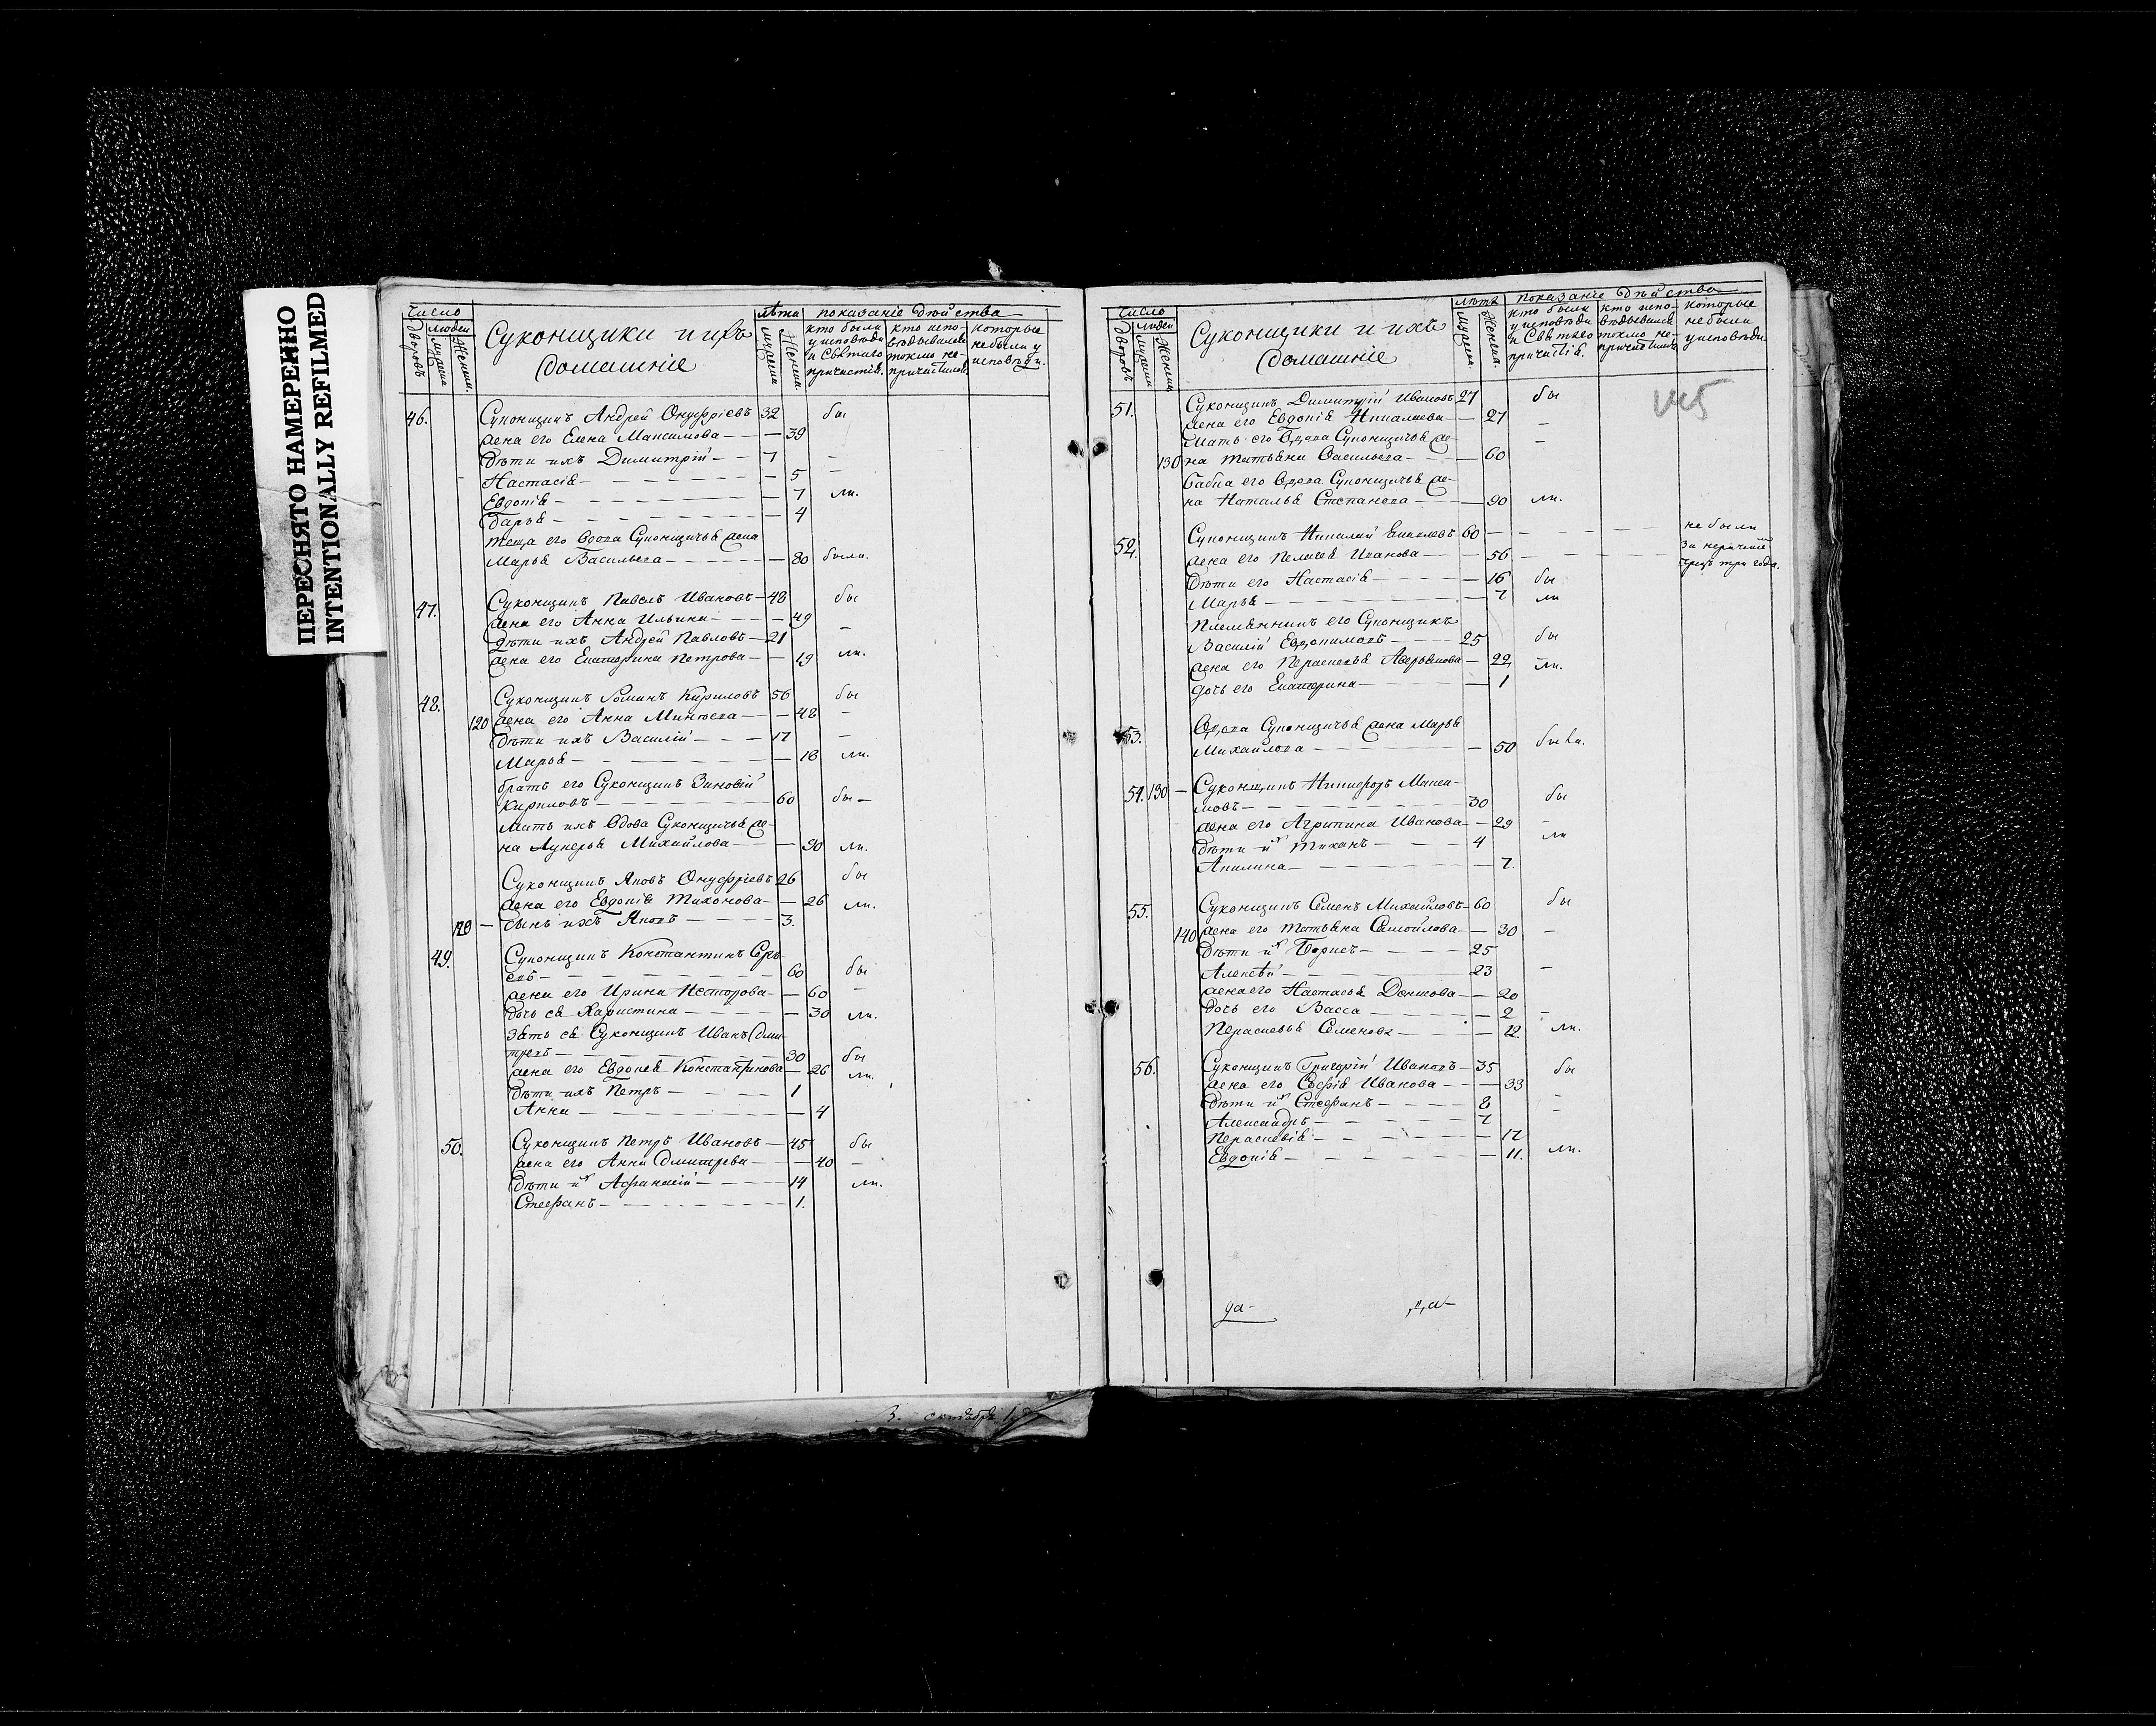 ПЕРЕСНЯТО НАМЕРЕННО
INTENTIONALLY REFILMED
число
дворовъ
людей
мужеска
женска.
Суконщики и ихъ
домашніе
лѣта
мужеска
женска
показаніе дѣйства
кто были у исповѣди и святаго причастія.
кто исповѣдывались токмо не причастились
которые не были у исповѣди.
46. Суконщикъ Андрей Онуфріевъ 32 бы
жена его Елена Максимова — — 39
дѣти ихъ Димитрій — — 7 —
Настасія — — 5 —
Евдокія — — 7 ли.
Дарья — — 4
теща его вдова Суконщичья жена
Марья Васильева — — 80 были.
47. Суконщикъ Павелъ Ивановъ — 48 бы
жена его Анна Ильина — — 49
дѣти ихъ Андрей Павловъ — 21 —
жена его Екатерина Петрова — — 19 ли.
48. Суконщикъ Романъ Кириловъ 56 бы
120 жена его Анна Минѣева — — 48 —
дѣти ихъ Василій — — 17 —
Марья — — 18 ли.
братъ его Суконщикъ Зиновій
Кириловъ — 60 бы —
мать ихъ вдова Суконщичья же-
на Лукерья Михайлова — — 90 ли.
Суконщикъ Яковъ Онуфріевъ 26 бы
жена его Евдокія Тихонова — — 26 ли.
120 — сынъ ихъ Яковъ — 3.
49. Суконщикъ Константинъ Серге-
евъ — 60 бы
жена его Ирина Несторова — — 60 —
дочь ея Харистина — — 30 ли.
зять ея Суконщикъ Иванъ Дми-
тревъ — 30 бы
жена его Евдокея Константинова — 26 ли.
дѣти ихъ Петръ — 1
Анна — — 4
50. Суконщикъ Петръ Ивановъ — 45 бы
жена его Анна Дмитрева — — 40 —
дѣти их Афанасій — 14 ли.
Стефанъ — 1.
3. октября
число
дворовъ
людей
мужеска
женска
Суконщики и ихъ
домашніе
лѣта
мужеска
женска.
показаніе дѣйства
кто были у исповѣди и святаго причастія.
кто исповѣдывались токмо не причастились
которые не были у исповѣди.
51. Суконщикъ Димитрій Ивановъ 27 бы
жена его Евдокія Николаева — — 27 —
мать его вдова Суконщичья же- —
130 на Татьяна Васильева — — 60
бабка его вдова Суконщичья же-
на Наталья Степанова — — 90 ли.
52. Суконщикъ Николай 60 — — — не были
жена его Пелагея Иванова — — 56 — — — за нерачение
дѣти его Настасія — — 16 бы чрезъ три года.
Марья — — 7 ли
племянникъ его Суконщикъ
Василій Евдокимовъ — 25 бы
жена его Перасковья Аверьянова — 22 ли.
дочь его Екатерина — — 1
53. вдова Суконщичья жена Марья
Михайлова — — 50 были.
54. 130 — Суконщикъ Никифоръ Макси-
мовъ — 30 бы
жена его Агрипина Иванова — — 29 —
дѣти их Тихонъ — 4 ли
Акилина — — 7.
55. Суконщикъ Семенъ Михайловъ — 60 бы
140 жена его Татьяна Самойлова — — 30 —
дѣти их Борисъ — 25
Алексѣй — 23 —
жена его Настасья Денисова — — 20
дочь его Васса — — 2 —
Перасковья Семенова — — 12 ли.
56. Суконщикъ Григорій Ивановъ — 35 бы
жена его Софія Иванова — — 33
дѣти их Стефанъ — 8 —
Александръ — 7 —
Перасковія — — 17
Евдокія — — 11. ли.